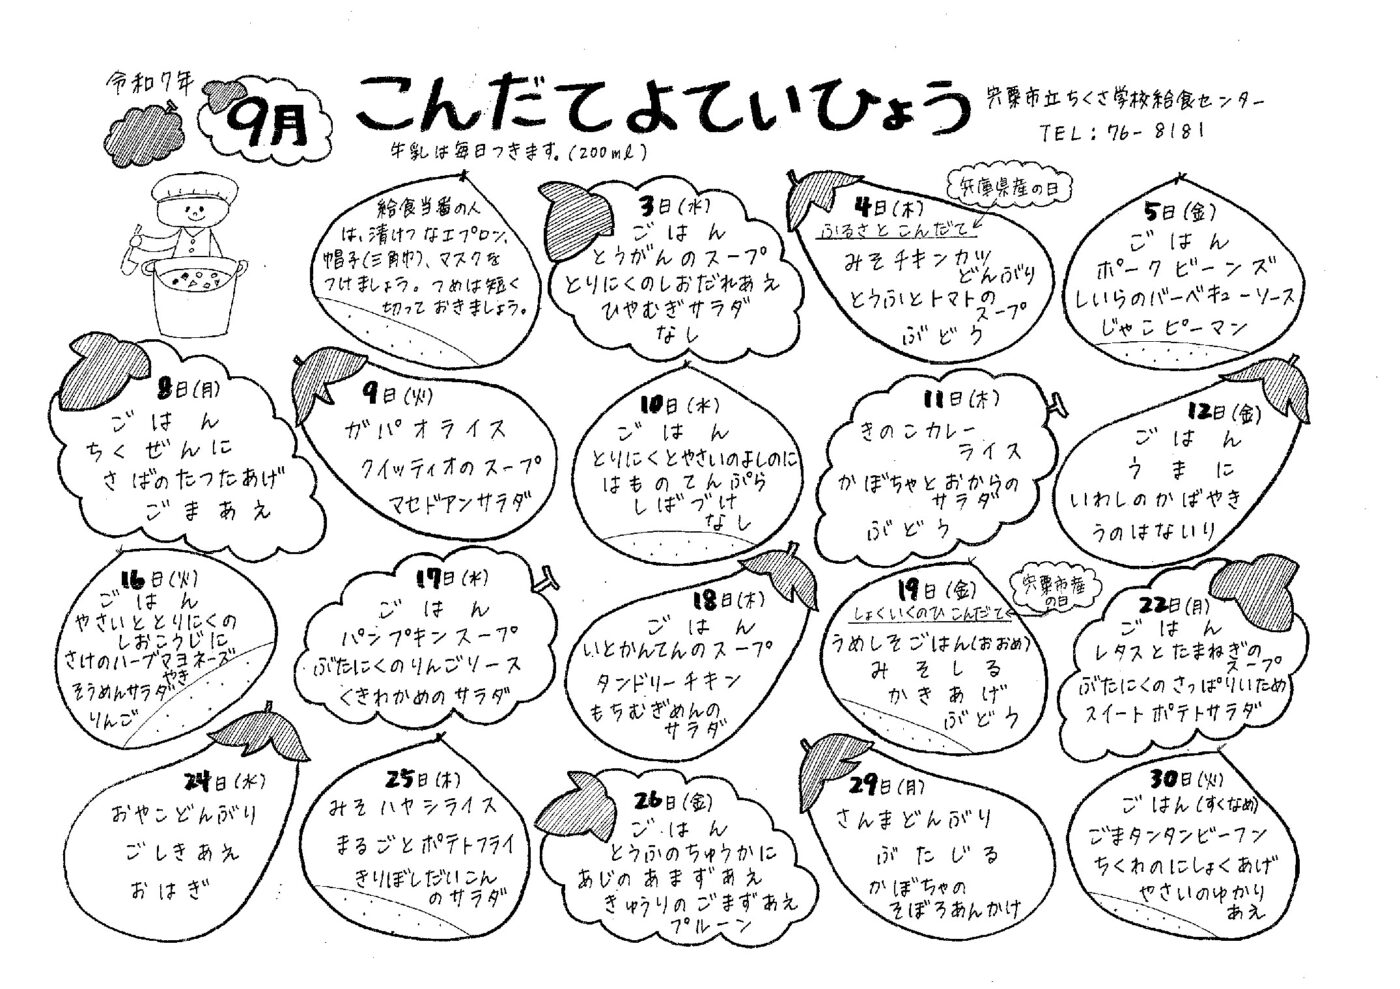 令和7年
9月
こんだてよていひょう
宍粟市立ちくさ学校給食センター
TEL:76-8181
牛乳は毎日つきます。(200ml)
給食当番の人
は、清けつなエプロン、
帽子(三角巾)、マスクを
つけましょう。つめは短く
切っておきましょう。
3日(水)
ごはん
とうがんのスープ
とりにくのしおだれあえ
ひやむぎサラダ
なし
兵庫県産の日
4日(木)
ふるさとこんだて
みそチキンカツ
どんぶり
とうふとトマトの
スープ
ぶどう
5日(金)
ごはん
ポークビーンズ
しいらのバーベキューソース
じゃこピーマン
8日(月)
ごはん
ちくぜんに
さばのたつたあげ
ごまあえ
9日(火)
ガパオライス
クイッティオのスープ
マセドアンサラダ
10日(水)
ごはん
とりにくとやさいのよしのに
はものてんぷら
しばづけ
なし
11日(木)
きのこカレー
ライス
かぼちゃとおからの
サラダ
ぶどう
12日(金)
ごはん
うまに
いわしのかばやき
うのはないり
16日(火)
ごはん
やさいととりにくの
しおこうじに
さけのハーブマヨネーズ
やき
そうめんサラダ
りんご
17日(水)
ごはん
パンプキンスープ
ぶたにくのりんごソース
くきわかめのサラダ
18日(木)
ごはん
いとかんてんのスープ
タンドリーチキン
もちむぎめんの
サラダ
19日(金)
宍粟市産
の日
しょくいくのひこんだて
うめしそごはん(おおめ)
みそしる
かきあげ
ぶどう
22日(月)
ごはん
レタスとたまねぎの
スープ
ぶたにくのさっぱりいため
スイートポテトサラダ
24日(水)
おやこどんぶり
ごしきあえ
おはぎ
25日(木)
みそハヤシライス
まるごとポテトフライ
きりぼしだいこん
のサラダ
26日(金)
ごはん
とうふのちゅうかに
あじのあまずあえ
きゅうりのごまずあえ
プルーン
29日(月)
さんまどんぶり
ぶたじる
かぼちゃの
そぼろあんかけ
30日(火)
ごはん(すくなめ)
ごまタンタンビーフン
ちくわのにしょくあげ
やさいのゆかり
あえ